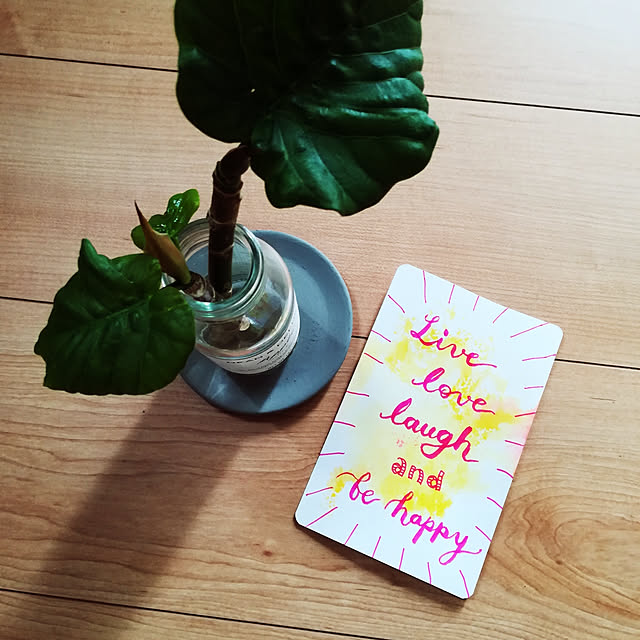 Live
love
laugh
and
be happy